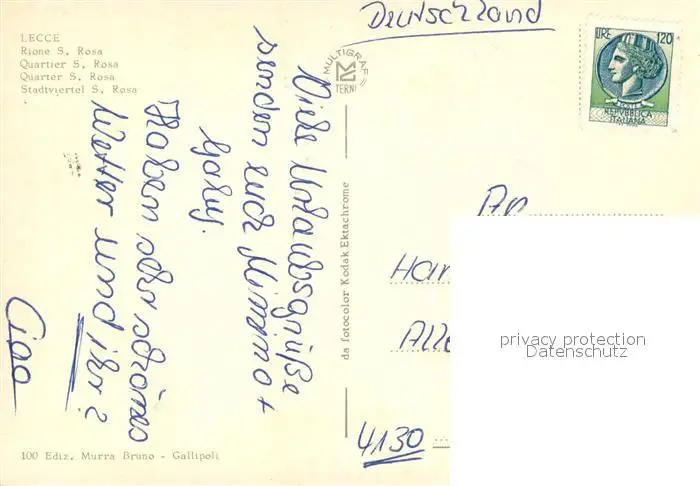 LECCE
Rione S. Rosa
Quartier S. Rosa
Quarter S. Rosa
Stadtviertel S. Rosa
Deutschland
MULTIGRAF
TERNI
LIRE 120
REPVBBLICA
ITALIANA
Viele Urlaubsgrüße
senden euch Mimmo +
Haben sehr schönes
Wetter und ihr?
Ciao
da fotocolor Kodak Ektachrome
An
Har
Alle
4130
privacy protection
Datenschutz
100 Ediz. Murra Bruno - Gallipoli